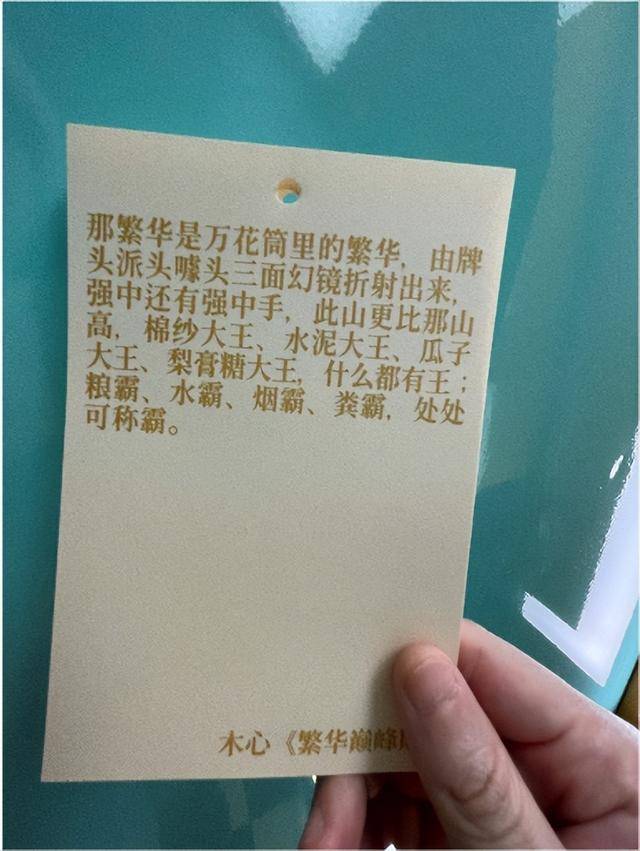 那繁华是万花筒里的繁华，由牌
头派头噱头三面幻镜折射出来，
强中还有强中手，此山更比那山
高，棉纱大王、水泥大王、瓜子
大王、梨膏糖大王，什么都有王；
粮霸、水霸、烟霸、粪霸，处处
可称霸。
木心《繁华巅峰